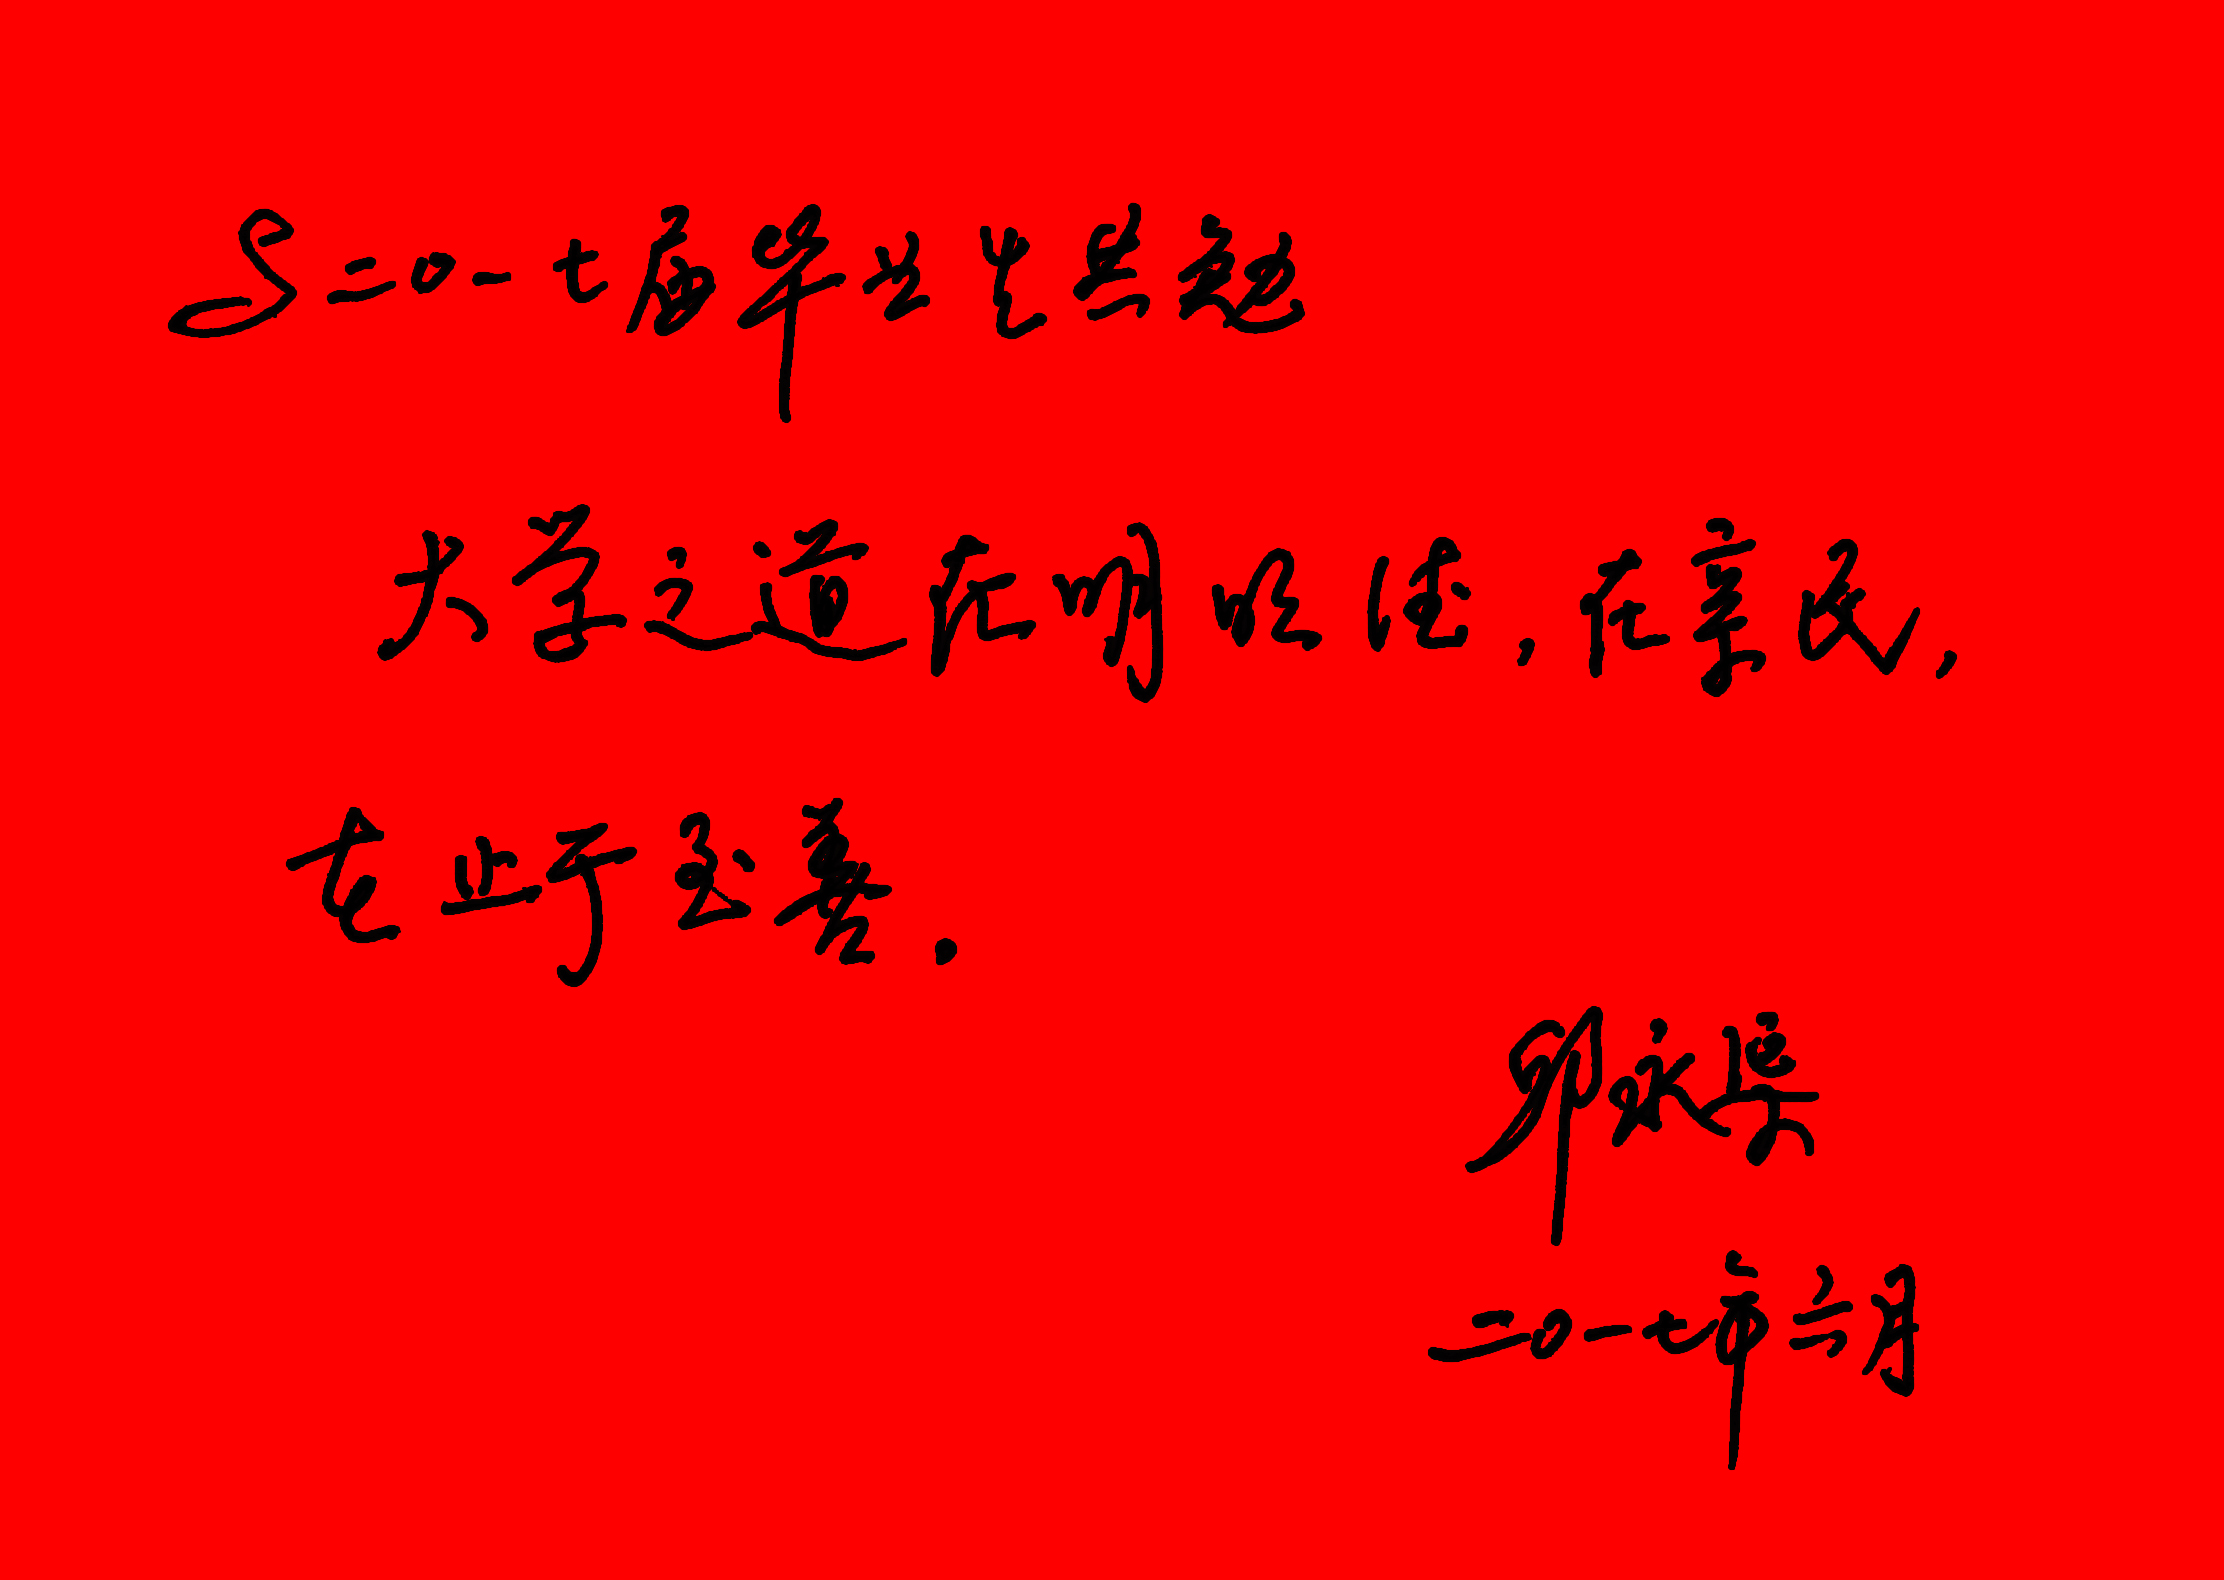 与二〇一七届毕业生共勉
大学之道在明明德，在亲民，
在止于至善．
邓永渠
二〇一七年六月